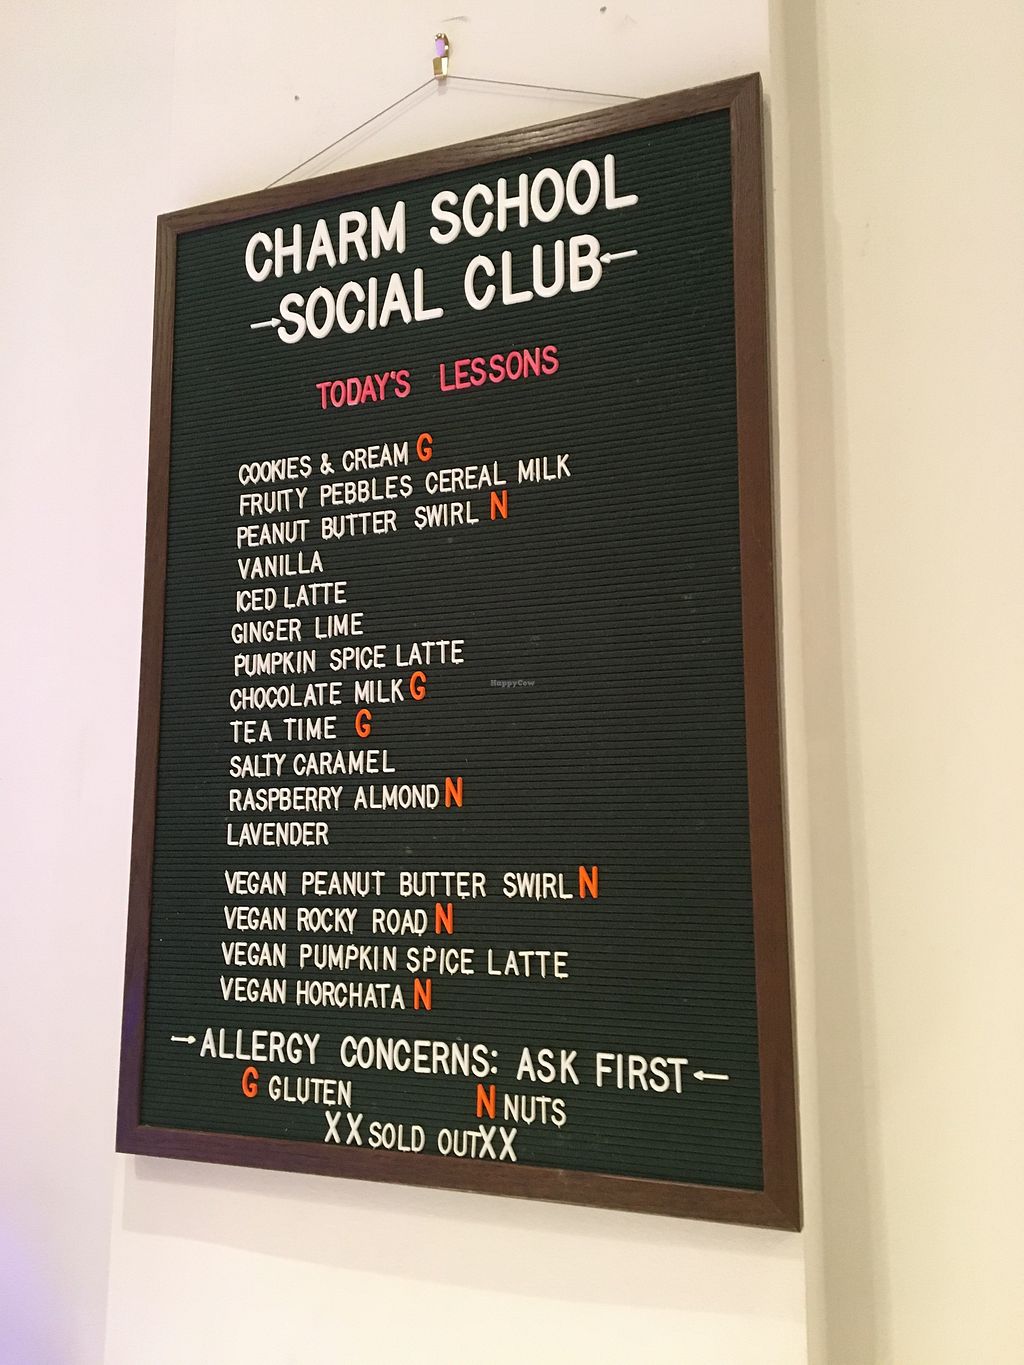 CHARM SCHOOL
→SOCIAL CLUB←
TODAY'S LESSONS
COOKIES & CREAM G
FRUITY PEBBLES CEREAL MILK
PEANUT BUTTER SWIRL N
VANILLA
ICED LATTE
GINGER LIME
PUMPKIN SPICE LATTE
CHOCOLATE MILK G
TEA TIME G
SALTY CARAMEL
RASPBERRY ALMOND N
LAVENDER
VEGAN PEANUT BUTTER SWIRL N
VEGAN ROCKY ROAD N
VEGAN PUMPKIN SPICE LATTE
VEGAN HORCHATA N
→ALLERGY CONCERNS: ASK FIRST←
G GLUTEN N NUTS
XX SOLD OUT XX
HappyCow